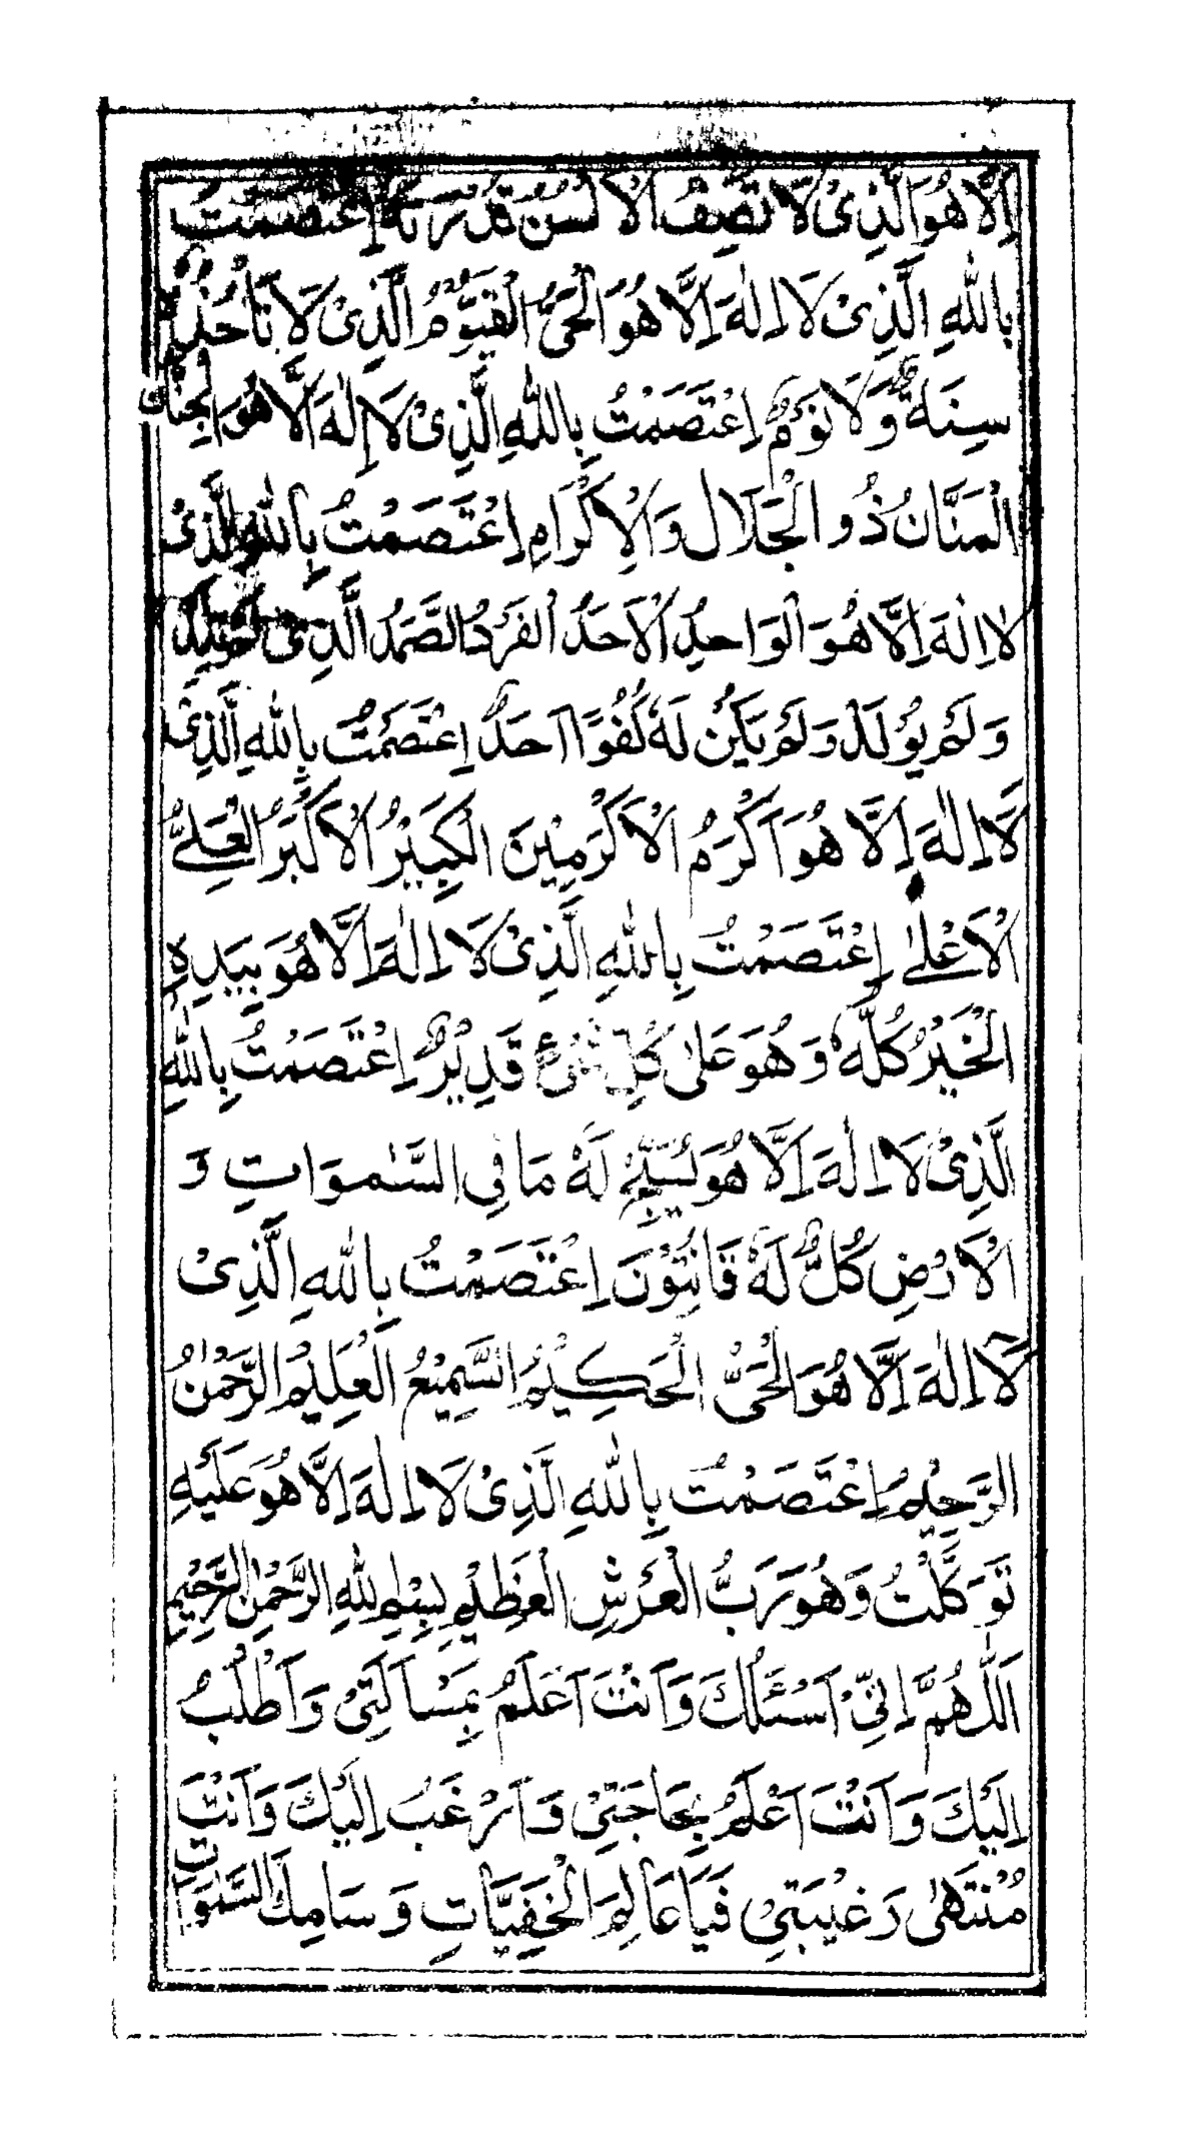 اِلَّا هُوَ الَّذِیْ لَا تَصِفُ الْاَلْسُنُ قُدْرَتَهٗ اِعْتَصَمْتُ
بِاللّٰهِ الَّذِیْ لَا اِلٰهَ اِلَّا هُوَ الْحَیُّ الْقَیُّوْمُ الَّذِیْ لَا تَاْخُذُهٗ
سِنَةٌ وَّلَا نَوْمٌ اِعْتَصَمْتُ بِاللّٰهِ الَّذِیْ لَا اِلٰهَ اِلَّا هُوَ
الْمَنَّانُ ذُو الْجَلَالِ وَالْاِكْرَامِ اِعْتَصَمْتُ بِاللّٰهِ الَّذِیْ
لَا اِلٰهَ اِلَّا هُوَ الْوَاحِدُ الْاَحَدُ الْفَرْدُ الصَّمَدُ الَّذِیْ لَمْ یَلِدْ
وَلَمْ یُوْلَدْ وَلَمْ یَكُنْ لَهٗ كُفُوًا اَحَدٌ اِعْتَصَمْتُ بِاللّٰهِ الَّذِیْ
لَا اِلٰهَ اِلَّا هُوَ اَكْرَمُ الْاَكْرَمِیْنَ الْكَبِیْرُ الْاَكْبَرُ الْعَلِیُّ
الْاَعْلٰی اِعْتَصَمْتُ بِاللّٰهِ الَّذِیْ لَا اِلٰهَ اِلَّا هُوَ بِیَدِهِ
الْخَیْرُ كُلُّهٗ وَهُوَ عَلٰی كُلِّ شَیْءٍ قَدِیْرٌ اِعْتَصَمْتُ بِاللّٰهِ
الَّذِیْ لَا اِلٰهَ اِلَّا هُوَ یُسَبِّحُ لَهٗ مَا فِی السَّمٰوَاتِ وَ
الْاَرْضِ كُلٌّ لَهٗ قَانِتُوْنَ اِعْتَصَمْتُ بِاللّٰهِ الَّذِیْ
لَا اِلٰهَ اِلَّا هُوَ الْحَیُّ الْحَكِیْمُ السَّمِیْعُ الْعَلِیْمُ الرَّحْمٰنُ
الرَّحِیْمُ اِعْتَصَمْتُ بِاللّٰهِ الَّذِیْ لَا اِلٰهَ اِلَّا هُوَ عَلَیْهِ
تَوَكَّلْتُ وَهُوَ رَبُّ الْعَرْشِ الْعَظِیْمِ بِسْمِ اللّٰهِ الرَّحْمٰنِ الرَّحِیْمِ
اَللّٰهُمَّ اِنِّیْ اَسْئَلُكَ وَاَنْتَ اَعْلَمُ بِمَسْاَلَتِیْ وَاَطْلُبُ
اِلَیْكَ وَاَنْتَ اَعْلَمُ بِحَاجَتِیْ وَاَرْغَبُ اِلَیْكَ وَاَنْتَ
مُنْتَهٰی رَغْیْبَتِیْ فَیَا عَالِمَ الْخَفِیَّاتِ وَسَامِكَ السَّمٰوَاتِ